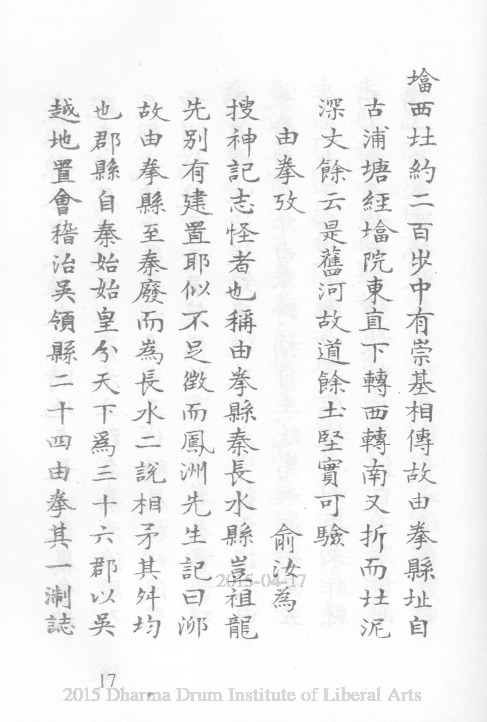 墖西北約二百步中有崇基相傳故由拳縣址自
古浦塘經墖院東直下轉西轉南又折而北泥
深丈餘云是舊河故道餘土堅實可驗
由拳攷 俞汝為
搜神記志怪者也稱由拳縣秦長水縣豈祖龍
先别有建置耶似不足徵而鳳洲先生記曰泖
故由拳縣至秦廢而為長水二說相矛其舛均
也郡縣自秦始始皇分天下爲三十六郡以吳
越地置會稽治吳領縣二十四由拳其一淛誌
2015-04-17
17
2015 Dharma Drum Institute of Liberal Arts